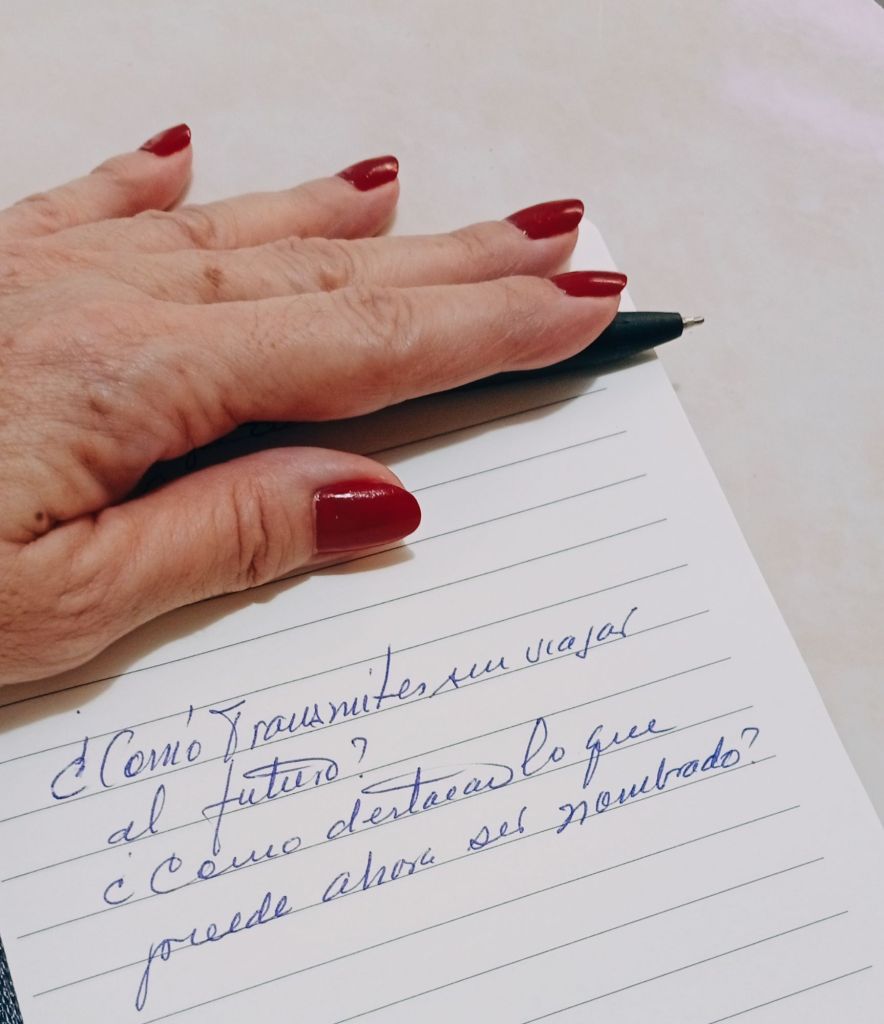 ¿Comó Transmites sin viajar
al futuro?
¿Como destacar lo que
puede ahora ser nombrado?